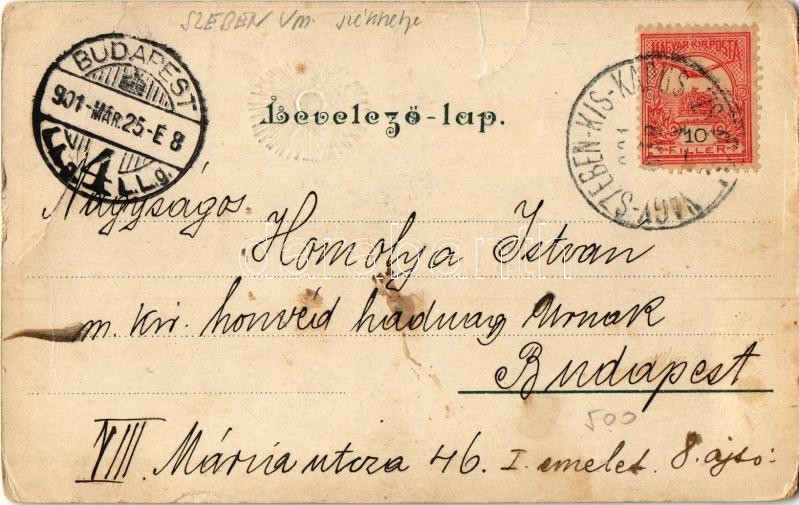 SZEBEN Vm. székhelye
BUDAPEST
901-MÁR.25-E 8
4
I.L.g. I.L.g.
Levelező-lap.
MAGYAR KIR. POSTA
10
FILLÉR
NAGY-SZEBEN-KIS-KAPUS
901
Nagyságos
Homolya Istvan
darabanth
m. kir. honvéd hadnagy Urnak
Budapest
500
VIII. Mária utcza 46. I. emelet. 8. ajtó.